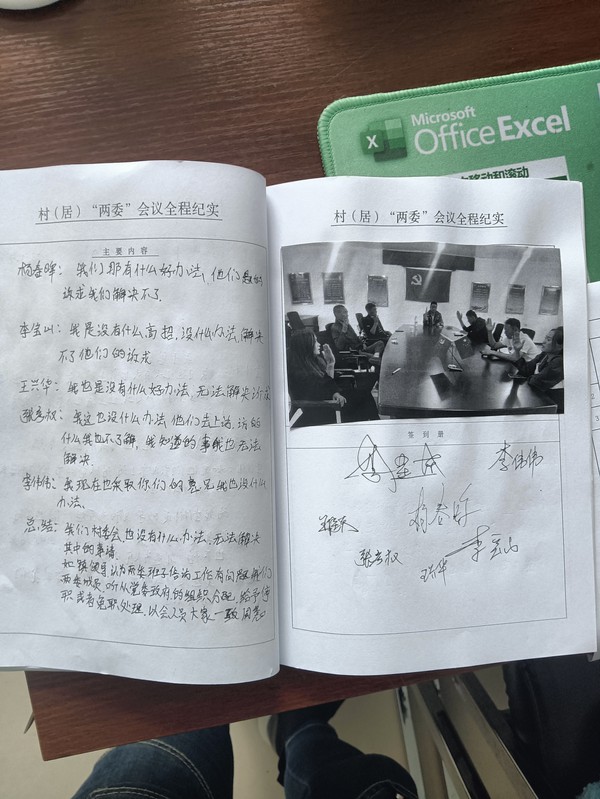 Microsoft
Office Excel
村（居）“两委”会议全程纪实
主要内容
杨春晖：我们都有什么好办法，他们
诉求我们解决不了.
李宝山：我是没有什么高招，没什么办法，解决
不了他们的诉求
王兴华：我也是没有什么好办法，无法解决
张彦权：我这也没什么办法，他们去上访，访的
什么我也不了解，我知道的事我也无法
解决.
李伟伟：我现在也采取你们的意见我也没什么
办法.
总结：我们村委会也没有什么办法、无法解决
其中的事情
如镇领导，认为两委班子信访工作有问题，我们
两委成员，听从党委政府的组织处理，给予停
职或者免职处理，以会人员大家一致同意
村（居）“两委”会议全程纪实
签到册
李伟伟
杨春晖
张彦权
李宝山
王兴华